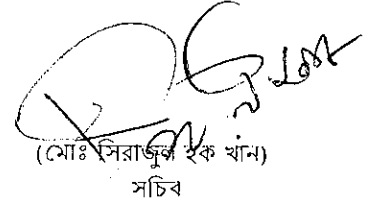 (মোঃ সিরাজুল হক খাঁন)
সচিব